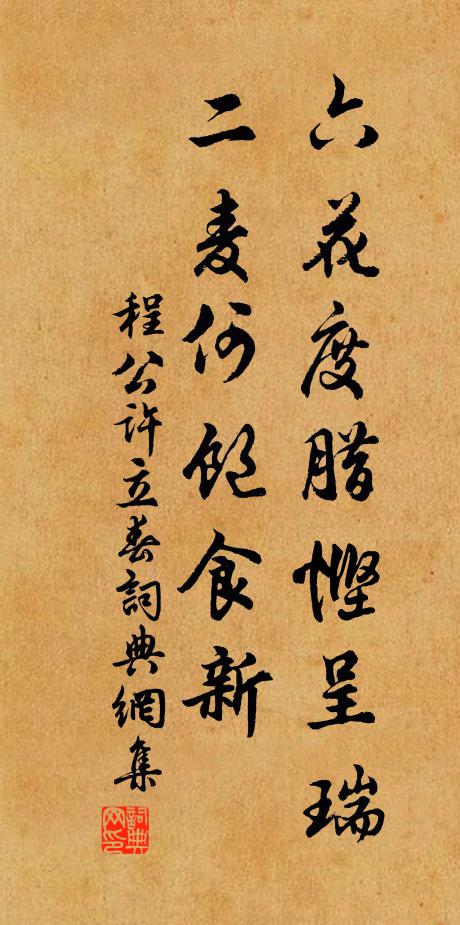 六花度腊慳呈瑞
二麦何饱食新
程公许立春詞典網集
詞典网印